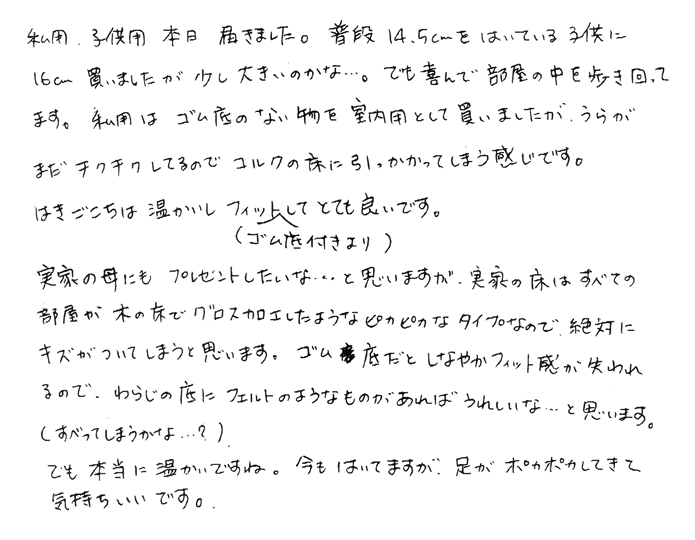 私用、子供用 本日 届きました。 普段 14.5cmを はいている 子供に
16cm 買いましたが 少し 大きいのかな…。 でも 喜んで 部屋の 中を 歩き 回って
ます。 私用は ゴム底の ない 物を 室内用として 買いましたが、うらが
まだ チクチクしてるので コルクの 床に 引っかかってしまう 感じです。
はきごこちは 温かいし フィットして とても 良いです。
(ゴム底付きより)
実家の母にも プレゼントしたいな…と 思いますが、実家の 床は すべての
部屋が 木の床で グロス加工したような ピカピカな タイプなので、絶対に
キズがついてしまうと 思います。 ゴム底だと しなやかフィット感が 失われ
るので、わらじの 底に フェルトのようなものが あれば うれしいな…と 思います。
(すべってしまうかな…?)
でも 本当に 温かいですね。 今も はいてますが、足が ポカポカしてきて
気持ちいいです。